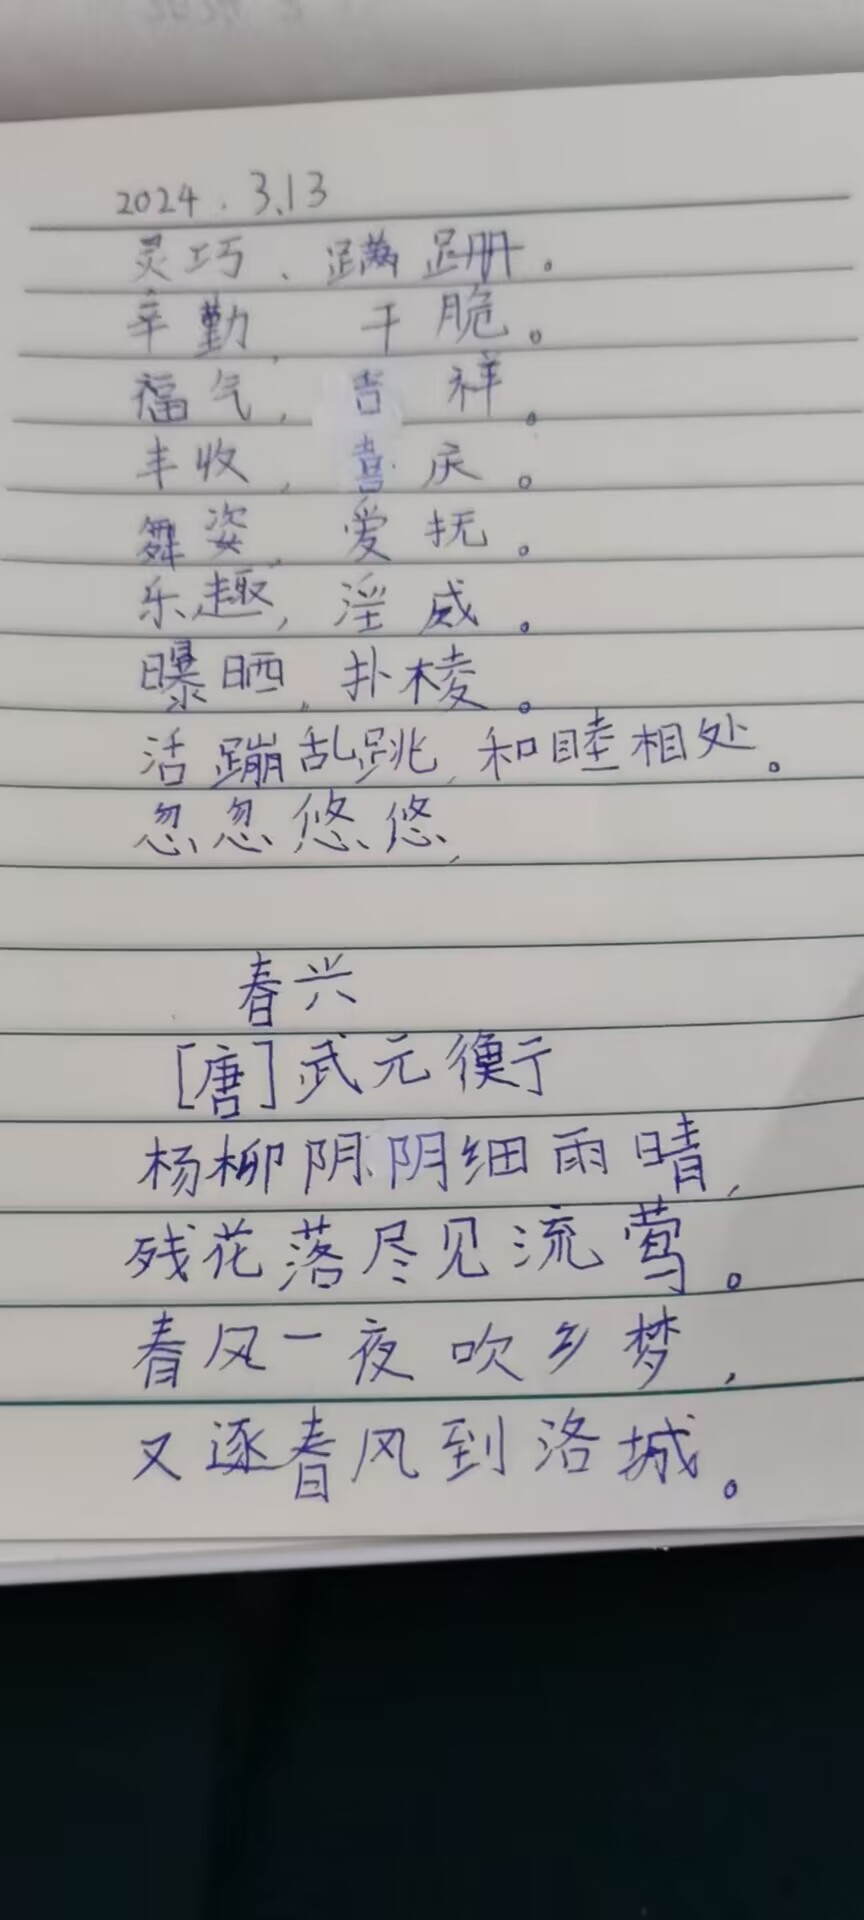 2024.3.13
灵巧、蹒跚。
辛勤,干脆。
福气,吉祥。
丰收,喜庆。
舞姿,爱抚。
乐趣,淫威。
曝晒,扑棱。
活蹦乱跳,和睦相处。
忽忽悠悠,
春兴
[唐]武元衡
杨柳阴阴细雨晴,
残花落尽见流莺。
春风一夜吹乡梦,
又逐春风到洛城。